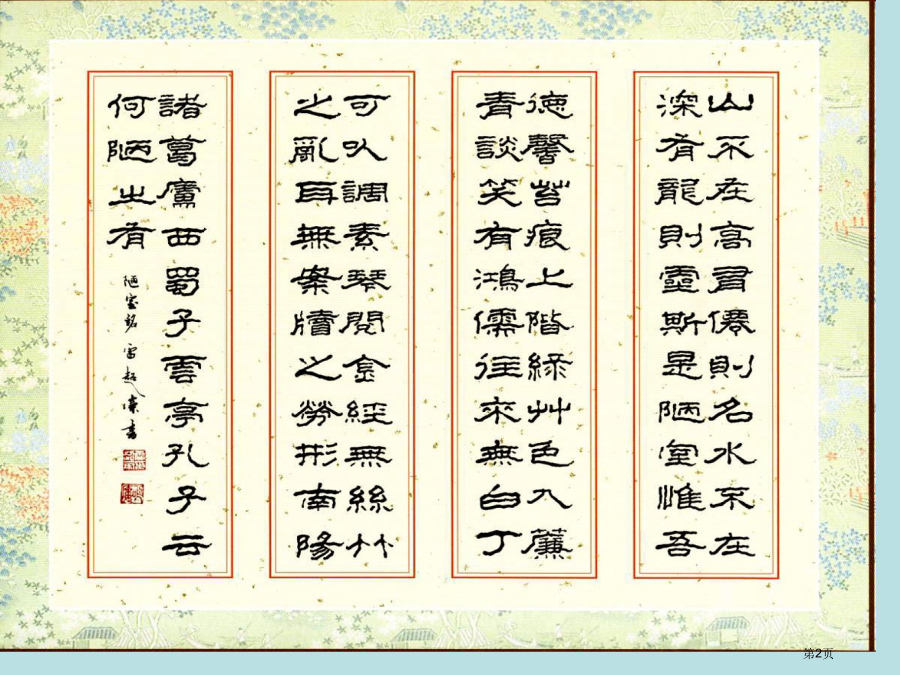 山不在高有僊則名水不在
深有龍則靈斯是陋室惟吾
德馨苔痕上階綠艸色入簾
青談笑有鴻儒往來無白丁
可以調素琴閱金經無絲竹
之亂耳無案牘之勞形南陽
諸葛廬西蜀子雲亭孔子云
何陋之有
陋室銘 雷超 書
第2页